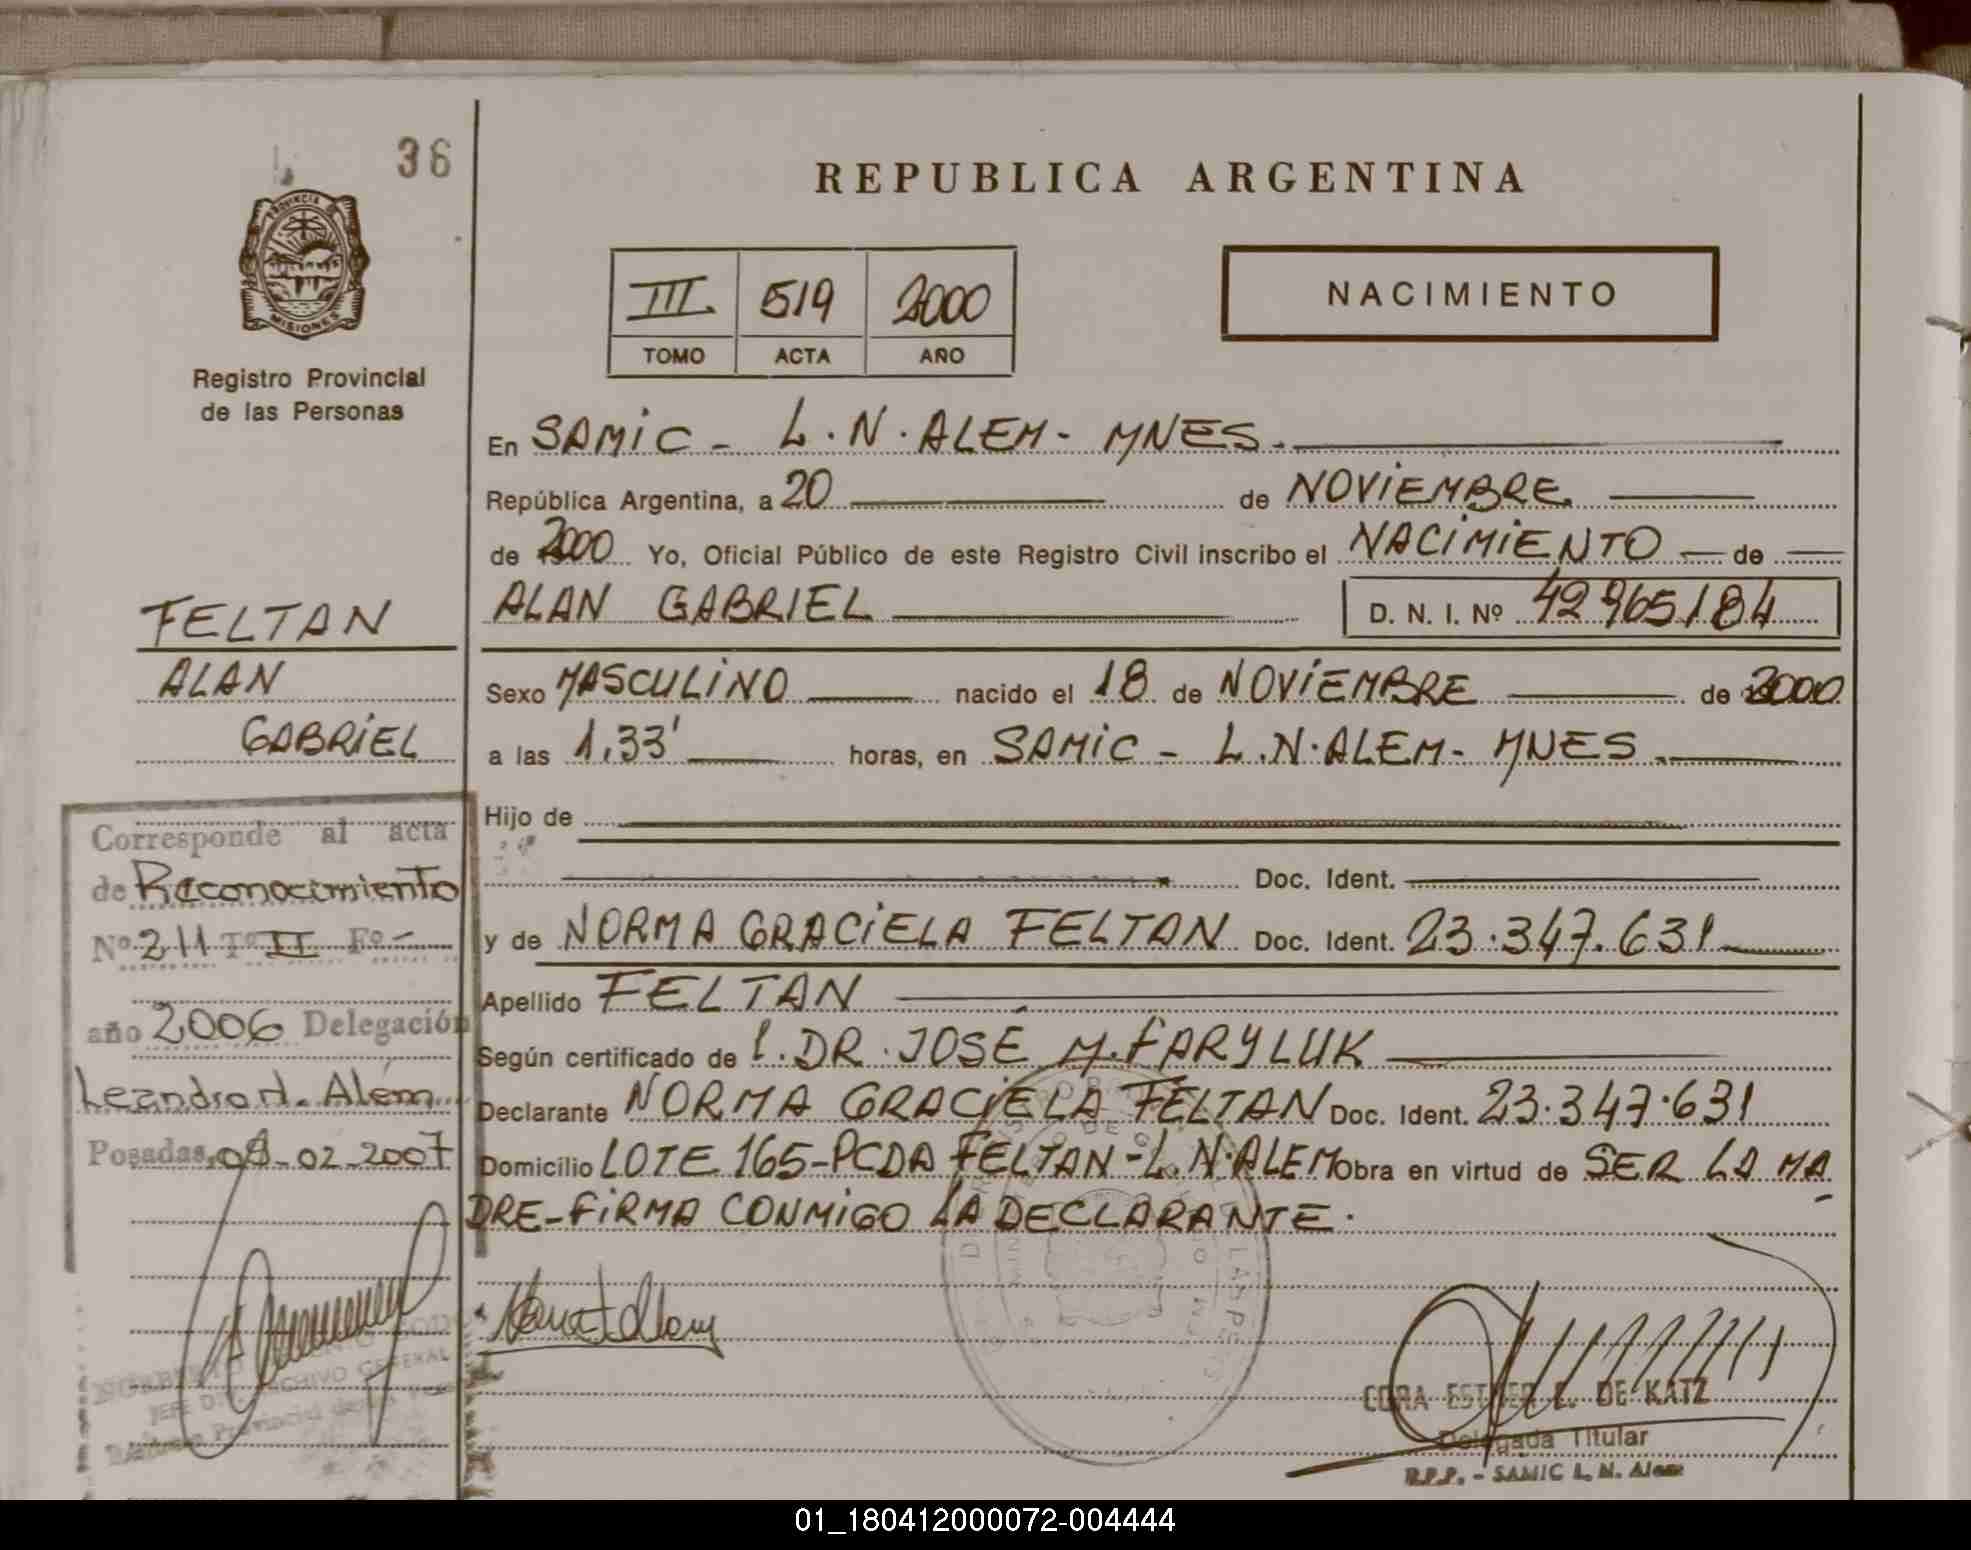 36
PROVINCIA DE
MISIONES
Registro Provincial
de las Personas
REPUBLICA ARGENTINA
III 519 2000
TOMO ACTA AÑO
NACIMIENTO
En SAMIC - L.N.ALEM - MNES.
República Argentina, a 20 de NOVIEMBRE
de 2000 Yo, Oficial Público de este Registro Civil inscribo el NACIMIENTO de
ALAN GABRIEL D. N. I. Nº 42965184
FELTAN
ALAN
GABRIEL
Sexo MASCULINO nacido el 18 de NOVIEMBRE de 2000
a las 1,33' horas, en SAMIC - L.N.ALEM - MNES.
Hijo de
Doc. Ident.
y de NORMA GRACIELA FELTAN Doc. Ident. 23.347.631
Apellido FELTAN
Según certificado de l. DR. JOSÉ M. FARYLUK
Declarante NORMA GRACIELA FELTAN Doc. Ident. 23.347.631
Domicilio LOTE 165-PCDA FELTAN-L.N.ALEM Obra en virtud de SER LA MA
DRE-FIRMA CONMIGO LA DECLARANTE.
Corresponde al acta
de Reconocimiento
Nº 211 Tº II Fº -
año 2006 Delegación
Leandro N. Alem
Posadas, 08-02-2007
ARCHIVO GENERAL
CORA ESTHER E. DE KATZ
Delegada Titular
R.P.P. - SAMIC L. N. Alem
01_180412000072-004444